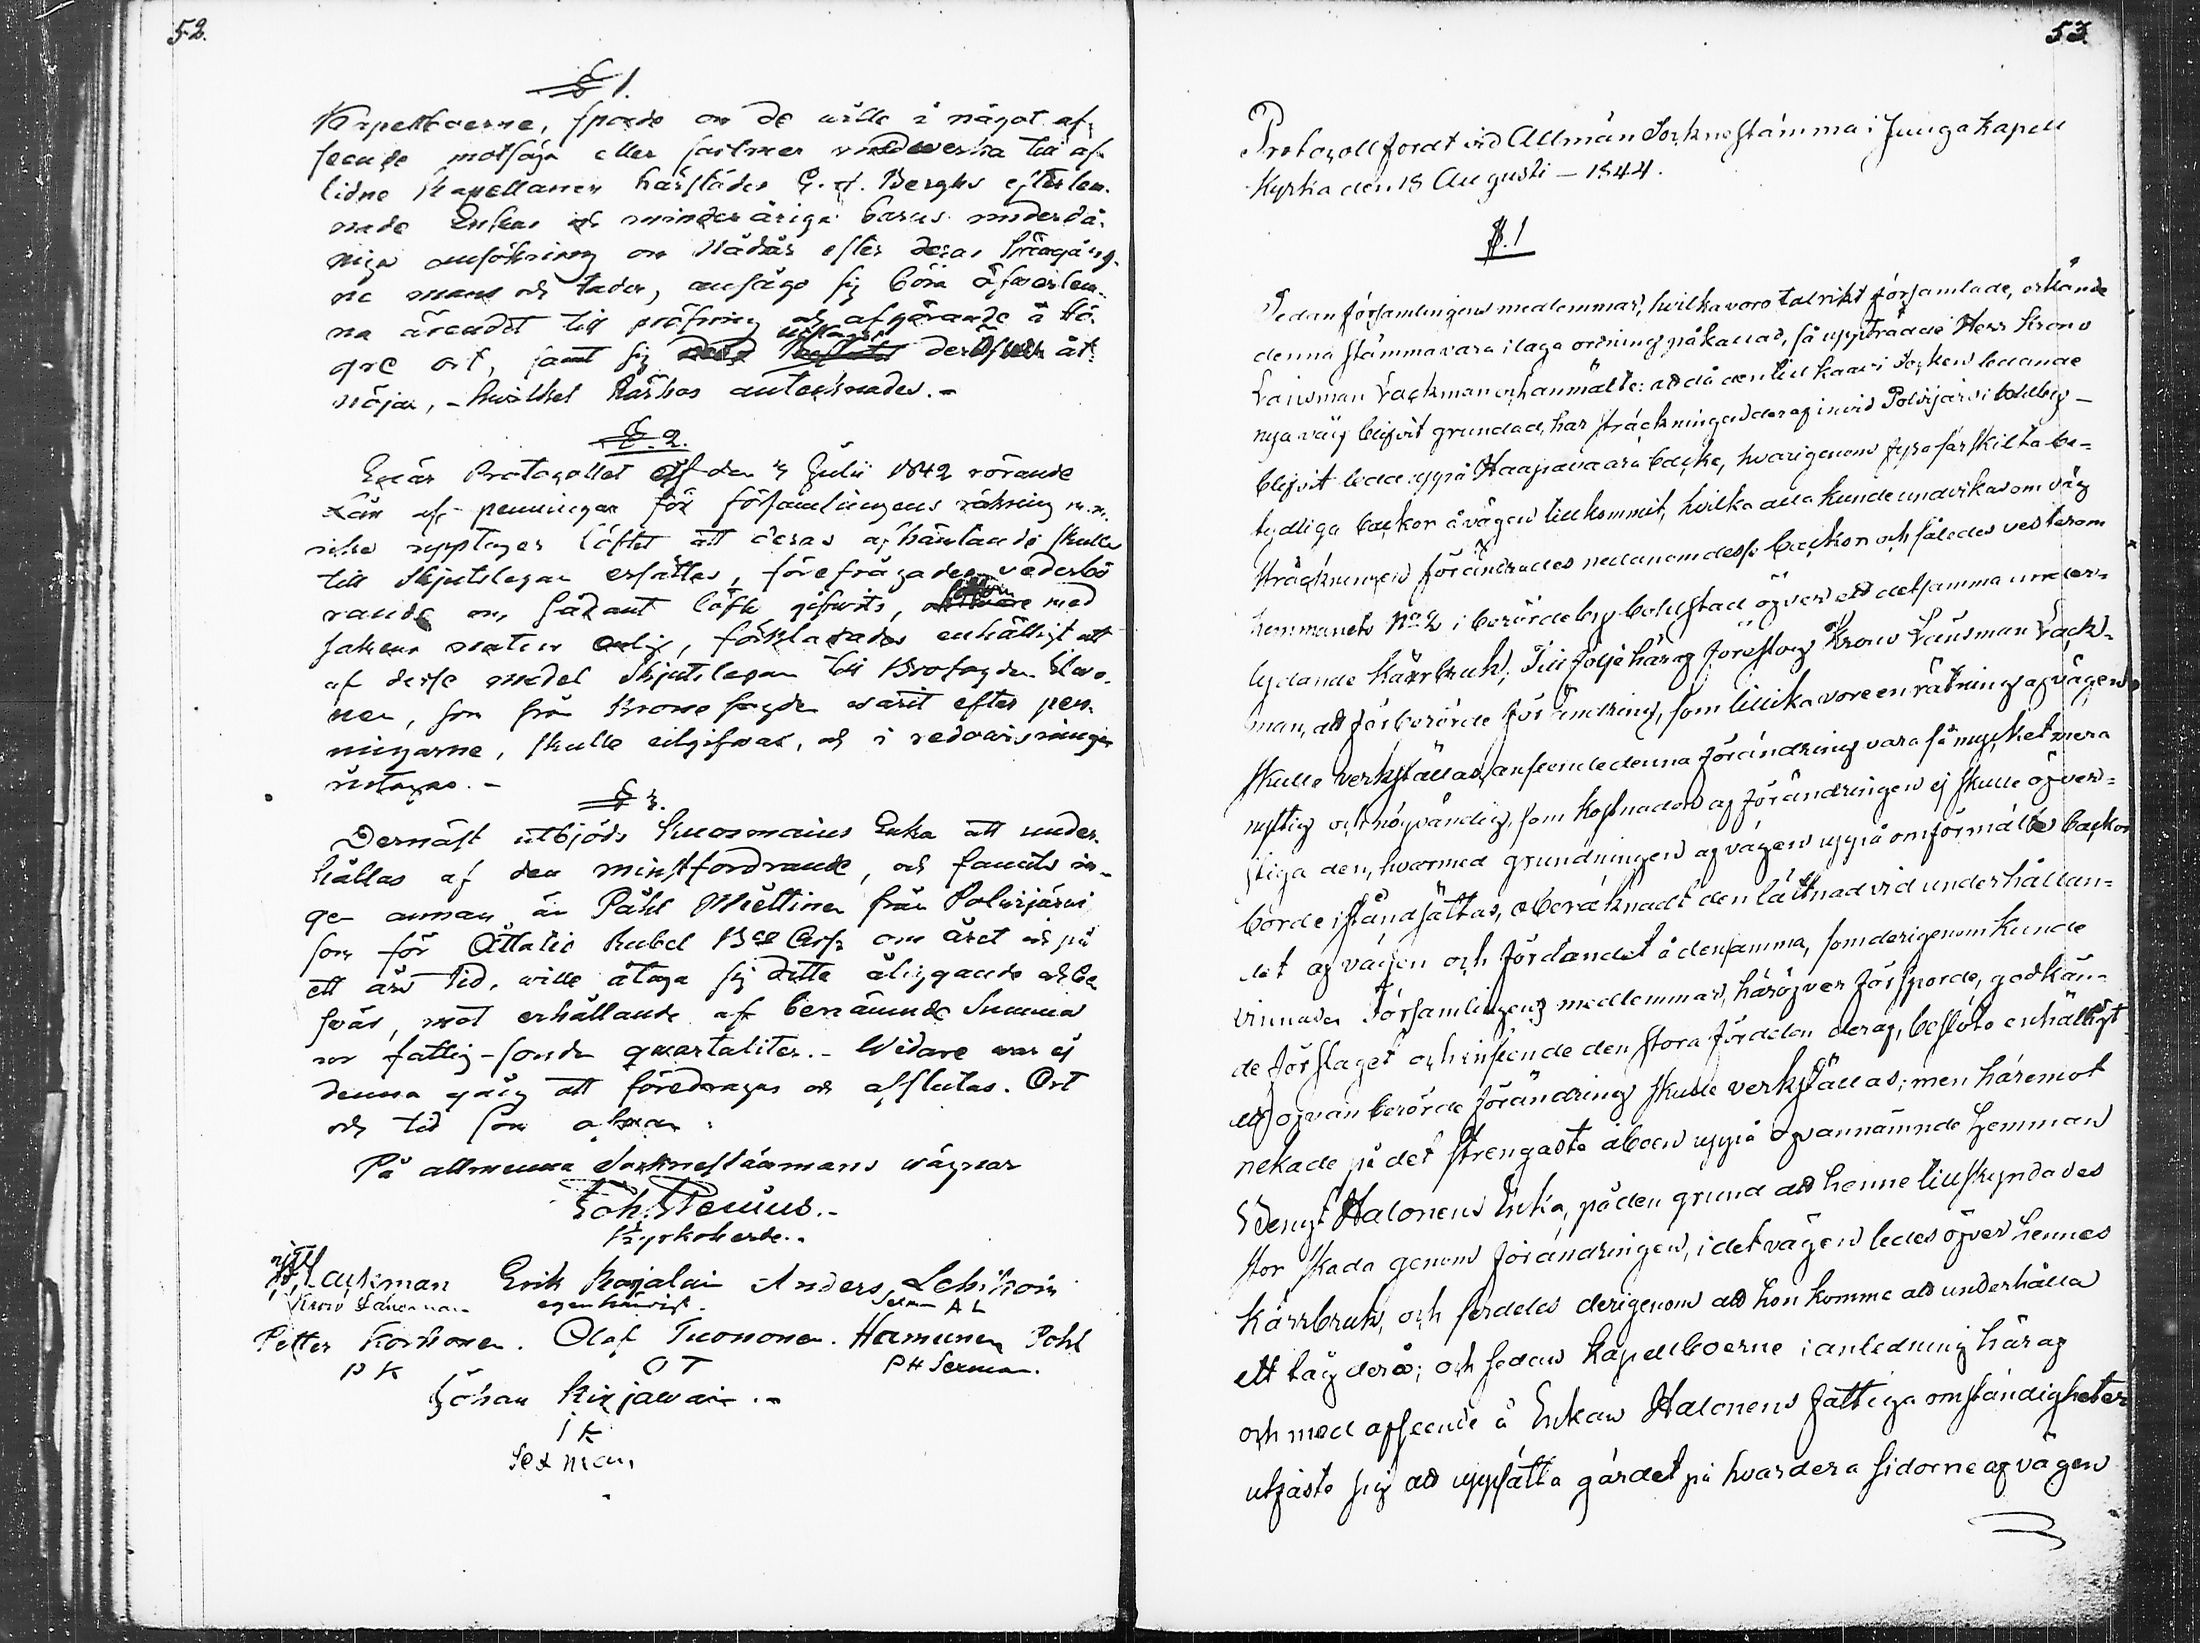 52.
§ 1.
Kapellboerne, sporde om de wille i något af-
seende motsäga eller  medwerka till af-
lidne Kapellanen härstädes G. J. Berghs efterlem-
nade Enkas och minderåriga barns underdå-
niga ansökning om Nådår efter deras frångång-
ne mans och fader, ansågo sig böra öfwerlem-
na ärendet till pröfning och afgörande å Hö-
gre ort, samt sig  deröfwer åt-
nöjan, - hwilket härhos antecknades. -
§. 2.
Enär Protocollet af den 3 Julii 1842 rörande
Lån af penningar för församlingens räkning m.m.
icke upptager löftet att deras afhämtande skulle
till Skjutslegan ersättas, förefrågades wederbö-
rande om sådant löfte gifwits,  med
saken  enlig, förklarades enhälligt att
af desse medel skjutslegan till Brofogden
nen, som från Kronofogden warit efter pen-
ningarne, skulle utgifwas, och i redowisningen
intagas. -
§ 3.
Dernäst utbjöds Kuosmains Enka att under-
hållas af den minstfordrande, och fanns in-
gen annan än Påhl Miettinen från Polvijärvi
som för Åtta  Rubel  om året och på
ett års tid, wille åtaga sig detta åliggande och be-
swär, mot erhållande af benämnde Summa
ur fattig-fonden qvartaliter. - Widare war ej
denna gång att föredragas och afslutas. Ort
och tid som ofwan.
På allmenna Socknestämmans wägnar
Joh. Stenius. -
Kyrkoherde. -
Lackman Erik Karjalain Anders Lehikoin
Krono Länsman egenhändigt. Sexman A L
Petter Korhonen. Olof Tuononen. Hamunen Pohl
P K O T P H Sexman.
Johan Kirjawain. -
I K
Sexman
53.
Protocoll fördt vid Allmän Socknestämma i Juuga Kapell
Kyrka den 18 Augusti - 1844.
§. 1
Sedan församlingens medlemmar, hvilka voro talrikt församlade, erkände
denna stämma vara i laga ordning påkallad, så uppträdde Herr Krono
Länsman Lackman och anmälte: att då den till Kaavi Socken ledande
nya väg blifvit grundad, har sträckningen deraf invid Polvijärvi bolby -
blifvit ledd uppå Haapavaara backe, hvarigenom fyra särskilta be-
tydliga backor å vägen tillkommit, hvilka alla kunde undvikas om väg
sträckningen förändrades nedanom desse backor och således vesterom
hemmanets No 2 i berörde by bohlstad öfver ett detsamma under-
lydande kärrbruk; Till följe häraf föreslog Krono Länsman Lack-
man, att förberörde förändring, som tillika vore en rätning af vägen
skulle verkställas, anseende denna förändring vara så mycket mera
nyttig och nödvändig, som kostnaden af förändringen ej skulle öfver-
stiga den, hvarmed grundningen af vägen uppå omförmälte backor
borde iståndsättas, oberäknadt den lättnad vid underhållan-
det af vägen och fördandet å densamma, som derigenom kunde
vinnas. Församlingens medlemmar, häröfver försporde, godkän-
de förslaget och inseende den stora fördelen deraf, beslöto enhälligt
att ofvanberörde förändring skulle verkställas; men häremot
nekade på det strengaste åboen uppå ofvannämnde hemman
Bengt Halonens Enka, på den grund att henne tillskyndades
stor skada genom förändringen, i det vägen ledes öfver hennes
kärrbruk, och serdeles derigenom att hon komme att underhålla
ett tåg derå; och sedan kapellboerne i anledning häraf
och med afseende å Enkan Halonens fattiga omständigheter
utfäste sig att uppsätta gärdet på hvardera sidorne af vägen